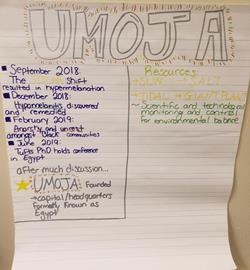 UMOJA
September 2018:
The Shift
resulted in hypermelanation
December 2018:
Hypomelantis discovered
and remedied
February 2019:
Anarchy and unrest
amongst Black communities
June 2019:
Tufts PhD holds conference
in Egypt
after much discussion...
UMOJA Founded
→ capital/headquarters
formerly known as
Egypt
Resources:
→ SUN → SALT
→ TIDAL → GIANT PLANTS
~ Scientific and technological
monitoring and control
for environmental balance